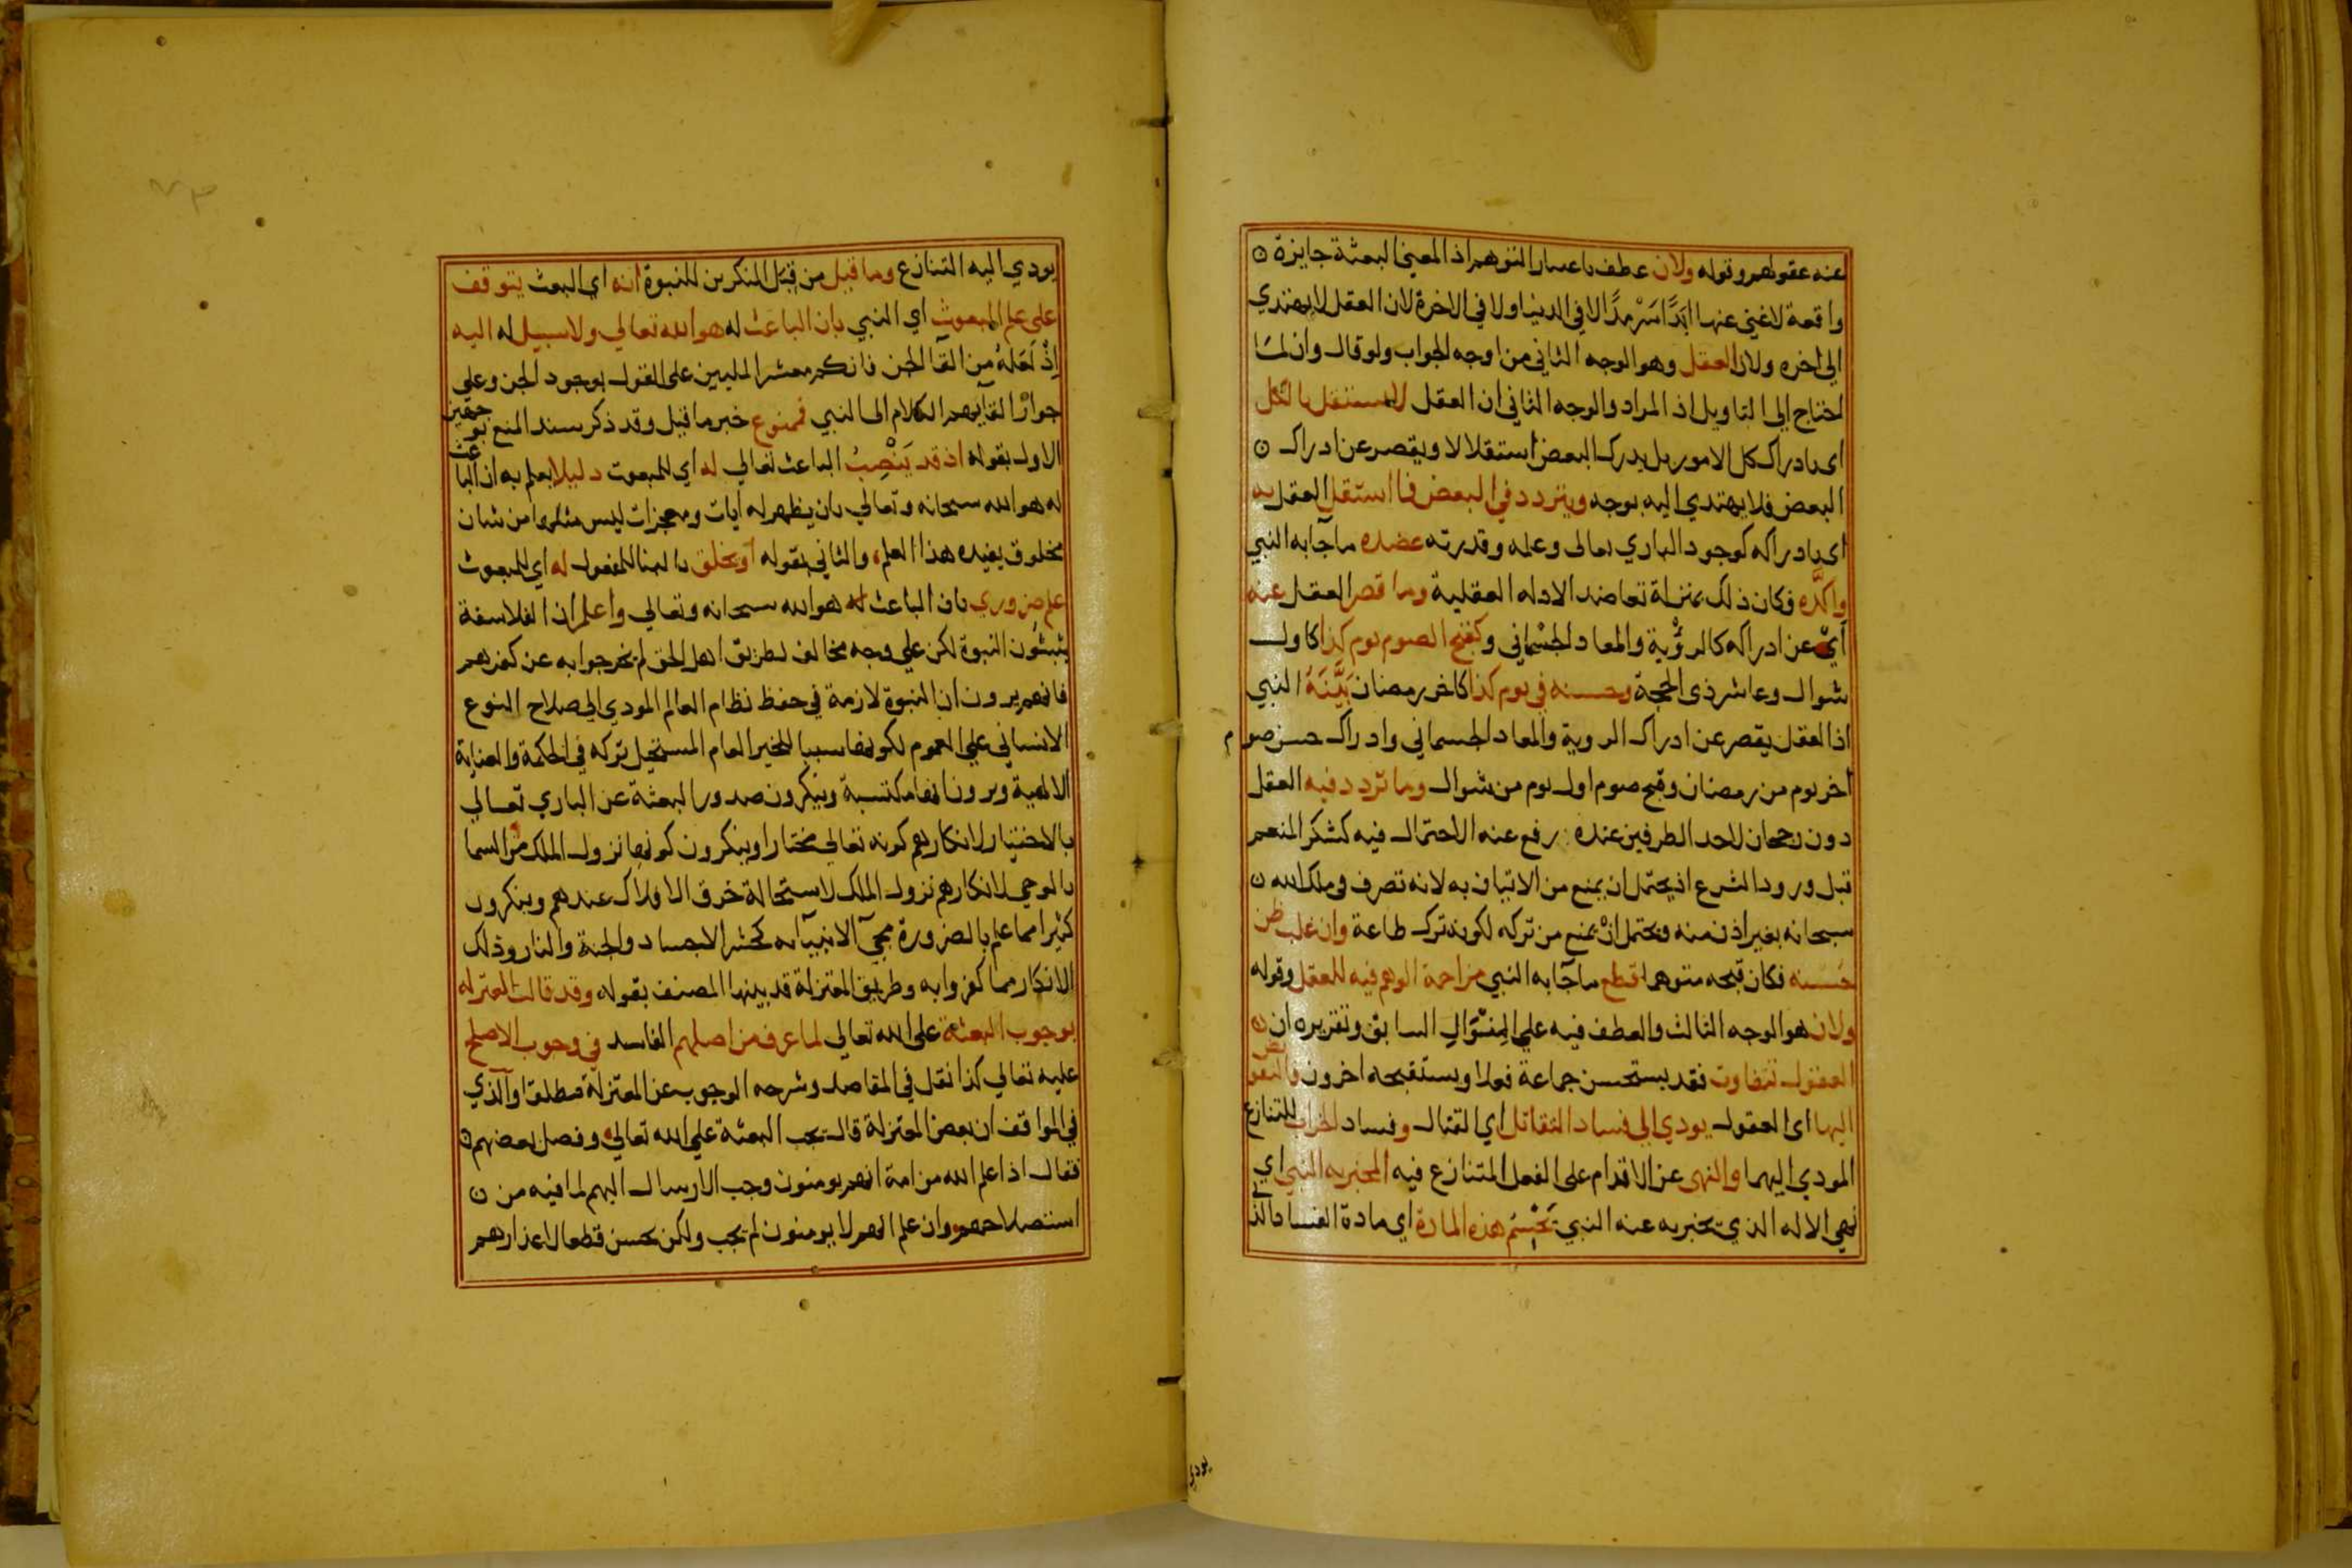 عنه عقولهم وقوله ولان عطف باعتبار التوهم اذ المعنى البعثة جايزة
واقعة لا غنى عنها ابَدًا سَرْمدًا لا في الدنيا ولا في الاخرة لان العقل لا يهتدي
الى اخره ولان العقل وهو الوجه الثاني من اوجه الجواب ولو قال وان لما
احتاج الى التاويل اذ المراد والوجه الثاني ان العقل لا يستقل بالكل
اى بادراك كل الامور بل يدرك البعض استقلالا ويقصر عن ادراك
البعض فلا يهتدي اليه بوجه ويتردد في البعض فما استقل العقل به
اى بادراكه كوجود الباري تعالى وعلمه وقدرته عضده ما جآ به النبي
واكَّدَه فكان ذلك بمنزلة تعاضد الادله العقلية وما قصر العقل عنه
اي عن ادراكه كالرؤية والمعاد الجسْماني وكقبح الصوم يوم كذا كاول
شوال وعاشر ذى الحجة وحسنه في يوم كذا كاخر رمضان بَيَّنَهُ النبي
اذ العقل يقصر عن ادراك الروية والمعاد الجسماني وادراك حسن صوم
اخر يوم من رمضان وقبح صوم اول يوم من شوال وما تردد فيه العقل
دون رجحان لاحد الطرفين عنده رفع عنه الاحتمال فيه كشكر المنعم
قبل ورود الشرع اذ يحتمل ان يمنع من الاتيان به لانه تصرف في ملك الله
سبحانه بغير اذن منه ويحتمل انْ يمنع من تركه لكونه ترك طاعة وان غلب ظن
حُسْنه فكان قبحه متوهما قطع ما جآ به النبي مزاحمة الوهم فيه للعقل وقوله
ولان هو الوجه الثالث والعطف فيه على المِنْوَالِ السابق وتقريره ان
العقول تتفاوت فقد يستحسن جماعة فعلا ويستقبحه اخرون فالتفويض
اليها اى العقول يودي الى فساد التقاتل اي القتال وفساد الخراب للتنازع
المودي اليهما والنهى عن الاقدام على الفعل المتنازع فيه المخبر به النبي اي
نهي الاله الذي يخبر به عنه النبي يَحْسِمُ هذه المادة اي مادة الفساد الذي
يودي
يودي اليه التنازع وما قيل من قِبَل المنكرين للنبوة انه اي البعث يتوقف
على علم المبعوث اي النبي بان الباعث له هو الله تعالى ولا سبيل له اليه
اِذْ لَعَلهُ من القآ الجن فانكم معشر المليين على القول بوجود الجن وعلى
جواز القايهم الكلام الى النبي فممنوع خبر ما قيل وقد ذكر سند المنع بوجهين
الاول بقوله اذ قد يَنْصِبُ الباعث تعالى له اي للمبعوث دليلا يعلم به ان الباعث
له هو الله سبحانه وتعالي بان يظهر له ايات ومعجزات ليس مثلها من شان
مخلوق يفيده هذا العلم والثاني بقوله اَوْ يخلق بالبنا للمفعول له اي للمبعوث
علم ضروري بان الباعث له هو الله سبحانه وتعالي واعلم ان الفلاسفة
يثبتُون النبوة لكن علي وجه مخالف لطريق اهل الحق لم يخرجوا به عن كفرهم
فانهم يرون ان النبوة لازمة في حفظ نظام العالم المودي الى صلاح النوع
الانساني علي العموم لكونها سببا للخير العام المستحيل تركه في الحكمة والعناية
الالهية ويرون انها مكتسبة وينكرون صدور البعثة عن الباري تعالي
بالاختيار لانكارهم كونه تعالى مختارا وينكرون كونها نزول الملك من السما
بالوحي لانكارهم نزول الملك لاستحالة خرق الافلاك عندهم وينكرون
كثيرا مما علم بالضرورة مجيَ الانبيآ به كحشر الاجساد والجنة والنار وذلك
الانكار مما كفروا به وطريق المعتزلة قد بينها المصنف بقوله وقد قالت المعتزله
بوجوب البعثة على الله تعالي لما عرف من اصلهم الفاسد في وجوب الاصلح
عليه تعالي كذا نقل في المقاصد وشرحه الوجوب عن المعتزلة مطلقا والذي
في المواقف ان بعض المعتزلة قال تجب البعثة علي الله تعالي وفصل بعضهم
فقال اذا علم الله من امة انهم يومنون وجب الارسال اليهم لما فيه من
استصلاحهم وان علم انهم لا يومنون لم يجب ولكن يحسن قطعا لاعذارهم